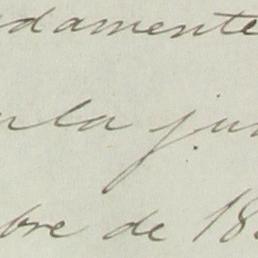 damente
la ju
bre de 18